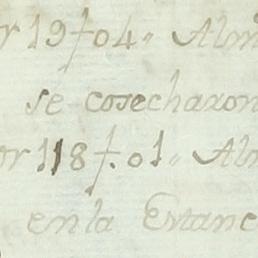 or 19f04,, Alm
se cosecharon
or 118f.01,, Alm
en la Estanc